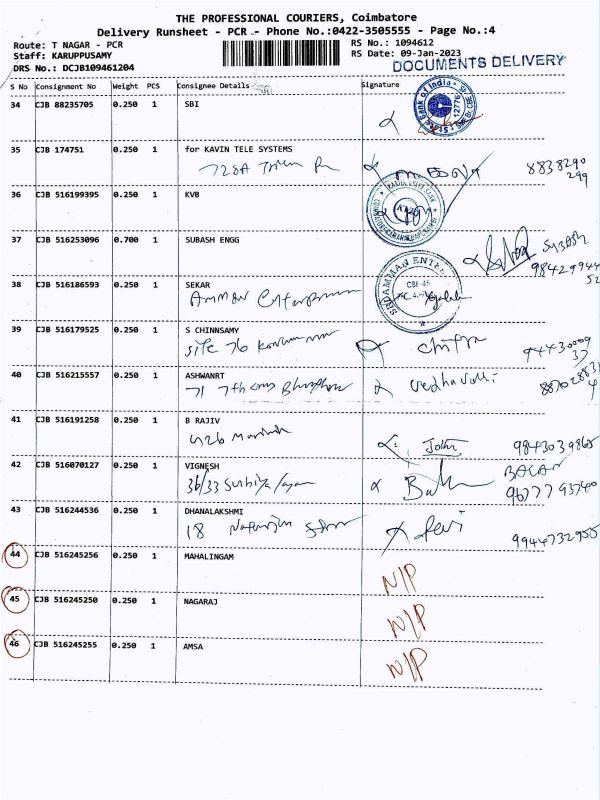 THE PROFESSIONAL COURIERS, Coimbatore
Delivery Runsheet - PCR - Phone No.:0422-3505555 - Page No.:4
Route: T NAGAR - PCR
Staff: KARUPPUSAMY
DRS No.: DCJB109461204
RS No.: 1094612
RS Date: 09-Jan-2023
DOCUMENTS DELIVERY
S No Consignment No Weight PCS Consignee Details Signature
34 CJB 88235705 0.250 1 SBI
35 CJB 174751 0.250 1 for KAVIN TELE SYSTEMS
728A
8838290
299
36 CJB 516199395 0.250 1 KVB
37 CJB 516253096 0.700 1 SUBASH ENGG
38 CJB 516186593 0.250 1 SEKAR
Amman Enterprises
SRI AMMAN ENTER
39 CJB 516179525 0.250 1 S CHINNSAMY
Site 76
Chitra
94430009
37
40 CJB 516215557 0.250 1 ASHWANRT
71 7th
41 CJB 516191258 0.250 1 B RAJIV
426
9843039865
42 CJB 516070127 0.250 1 VIGNESH
36/33
BALAN
9677793740
43 CJB 516244536 0.250 1 DHANALAKSHMI
18
Devi
9944732955
44 CJB 516245256 0.250 1 MAHALINGAM
N/P
45 CJB 516245250 0.250 1 NAGARAJ
N/P
46 CJB 516245255 0.250 1 AMSA
N/P